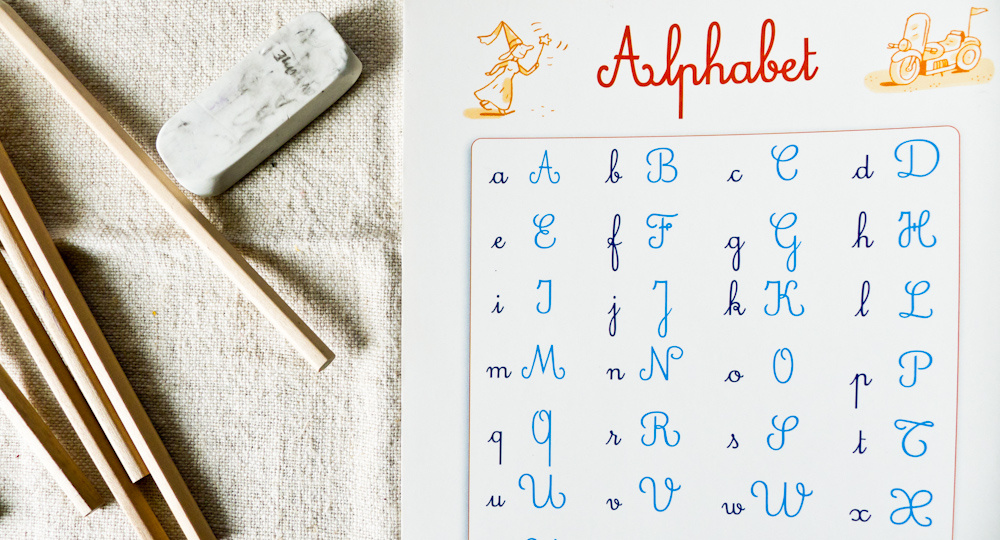 Alphabet
a A b B c C d D
e E f F g G h H
i I j J k K l L
m M n N o O p P
q Q r R s S t T
u U v V w W x X